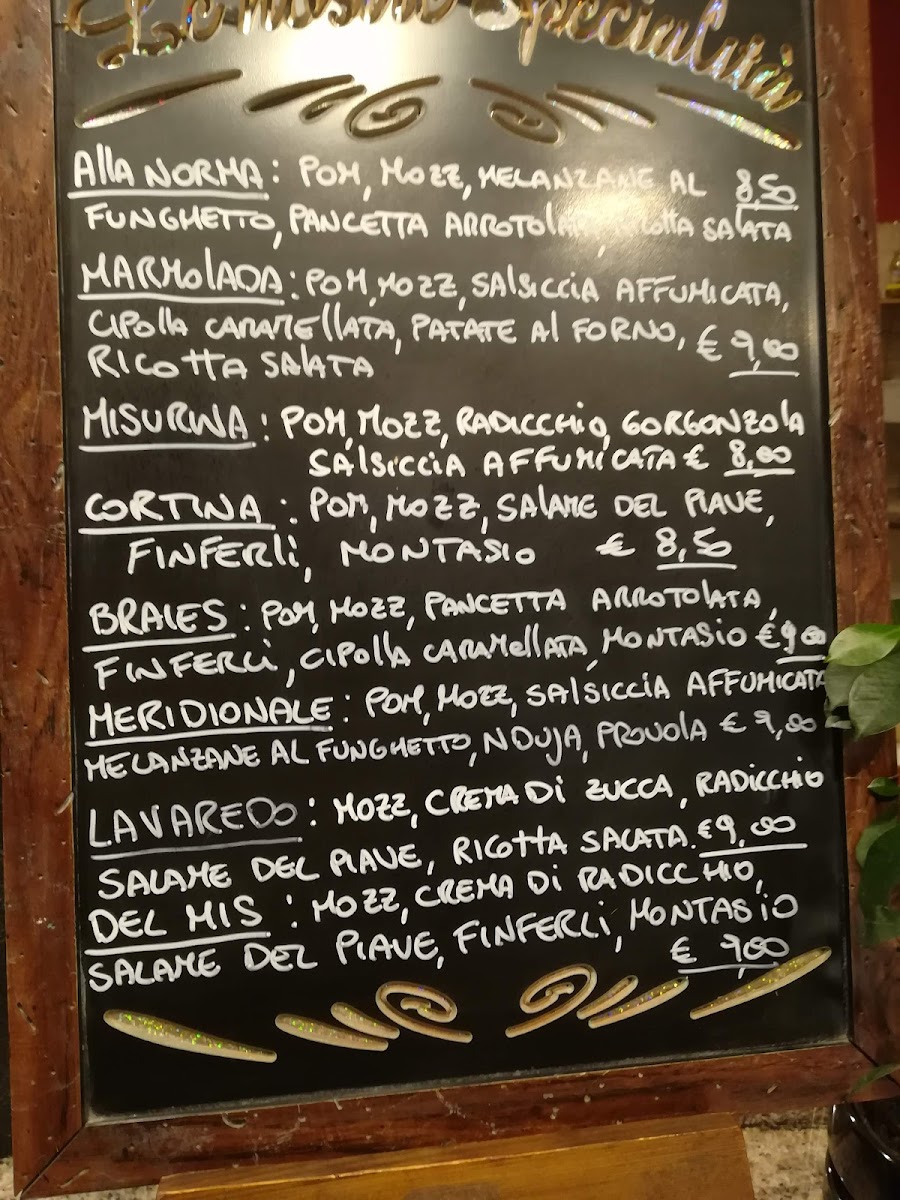 Le nostre Specialità
Alla NORMA: POM, MOZZ, MELANZANE AL 8,50
FUNGHETTO, PANCETTA ARROTOLATA, RICOTTA SALATA
MARMOLADA: POM, MOZZ, SALSICCIA AFFUMICATA,
CIPOLLA CARAMELLATA, PATATE AL FORNO, € 9,00
RICOTTA SALATA
MISURINA: POM, MOZZ, RADICCHIO, GORGONZOLA
SALSICCIA AFFUMICATA € 8,00
CORTINA: POM, MOZZ, SALAME DEL PIAVE,
FINFERLI, MONTASIO € 8,50
BRAIES: POM, MOZZ, PANCETTA ARROTOLATA,
FINFERLI, CIPOLLA CARAMELLATA, MONTASIO € 9,00
MERIDIONALE: POM, MOZZ, SALSICCIA AFFUMICATA
MELANZANE AL FUNGHETTO, NDUJA, PROVOLA € 9,00
LAVAREDO: MOZZ, CREMA DI ZUCCA, RADICCHIO
SALAME DEL PIAVE, RICOTTA SALATA. € 9,00
DEL MIS: MOZZ, CREMA DI RADICCHIO,
SALAME DEL PIAVE, FINFERLI, MONTASIO
€ 9,00